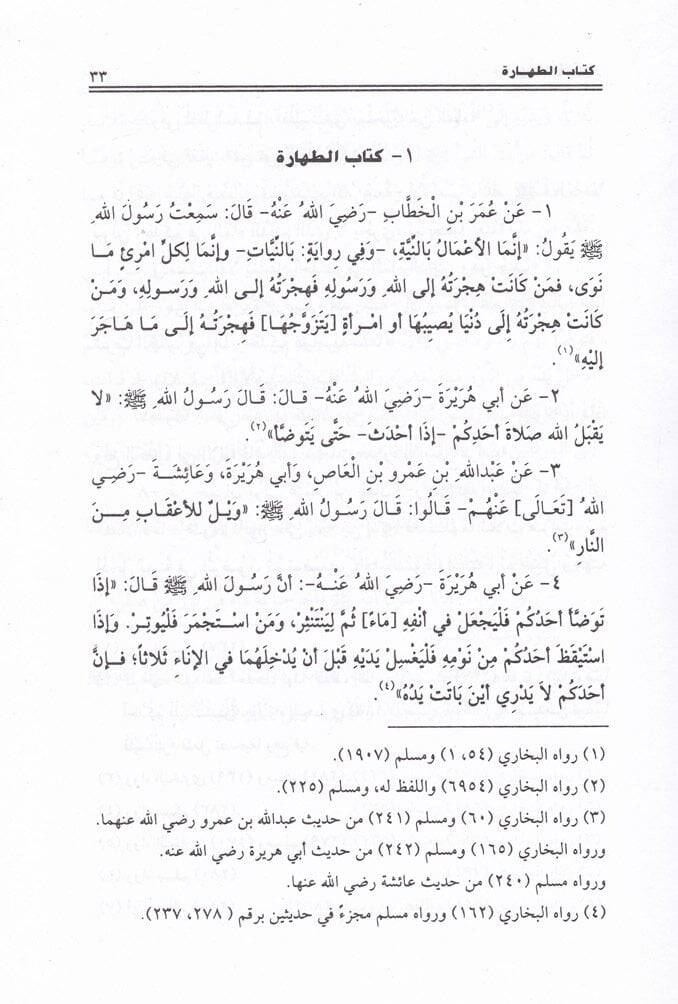 كتاب الطهارة ٣٣
١- كتاب الطهارة
١- عَنْ عُمَرَ بْنِ الْخَطَّابِ -رَضِيَ اللهُ عَنْهُ- قَالَ: سَمِعْتُ رَسُولَ اللهِ
ﷺ يَقُولُ: «إنَّمَا الأعْمَالُ بَالنِّيَّةِ، -وَفِي روايَةٍ: بَالنِّيَّاتِ- وإنَّمَا لِكلِّ امْرِئٍ مَا
نَوَى، فمَنْ كَانَتْ هِجْرَتُهُ إلى اللهِ وَرَسُولِهِ فَهِجْرَتُهُ إلى اللهِ وَرَسُولِهِ، وَمَنْ
كَانَتْ هِجْرَتُهُ إِلَى دُنْيَا يُصِيبُهَا أو امْرأةٍ [يَتَزَوَّجُهَا] فَهِجْرَتُهُ إلَى مَا هَاجَرَ
إليْهِ»(١).
٢- عَن أبي هُرَيْرَةَ -رَضِيَ اللهُ عَنْهُ- قالَ: قَالَ رَسُولُ اللهِ ﷺ: «لا
يَقْبَلُ الله صَلاةَ أحَدِكُمْ -إذَا أحْدَثَ- حَتَّى يَتَوضَّأ»(٢).
٣- عَنْ عَبدِاللهِ بْنِ عَمْرِو بْنِ الْعَاصِ، وَأبي هُرَيْرَةَ، وَعَائِشَةَ -رَضِيَ
اللهُ [تَعَالَى] عَنْهُمْ- قَالُوا: قَالَ رَسُولُ اللهِ ﷺ: «وَيْلٌ للأعْقَابِ مِنَ
النَّارِ»(٣).
٤- عَنْ أبي هُرَيْرَةَ -رَضِيَ اللهُ عَنْهُ-: أنَّ رَسُولَ اللهِ ﷺ قَالَ: «إِذَا
تَوَضَّأ أحَدُكُمْ فَلْيَجْعَلْ في أنْفِهِ [مَاءً] ثُمَّ لِيَنْتَثِرْ، وَمَنْ اسْتَجْمَرَ فَلْيُوتِرْ. وَإذَا
اسْتَيْقَظَ أحَدُكُمْ مِنْ نَوْمِهِ فَلْيَغْسِلْ يَدَيْهِ قَبْلَ أنْ يُدْخِلَهُمَا في الإنَاءِ ثَلاثاً؛ فَإنَّ
أحَدَكُمْ لاَ يَدْرِي أيْنَ بَاتَتْ يَدُهُ»(٤).
(١) رواه البخاري (٥٤، ١) ومسلم (١٩٠٧).
(٢) رواه البخاري (٦٩٥٤) واللفظ له، ومسلم (٢٢٥).
(٣) رواه البخاري (٦٠) ومسلم (٢٤١) من حديث عبدالله بن عمرو رضي الله عنهما.
ورواه البخاري (١٦٥) ومسلم (٢٤٢) من حديث أبي هريرة رضي الله عنه.
ورواه مسلم (٢٤٠) من حديث عائشة رضي الله عنها.
(٤) رواه البخاري (١٦٢) ورواه مسلم مجزءً في حديثين برقم ( ٢٧٨، ٢٣٧).